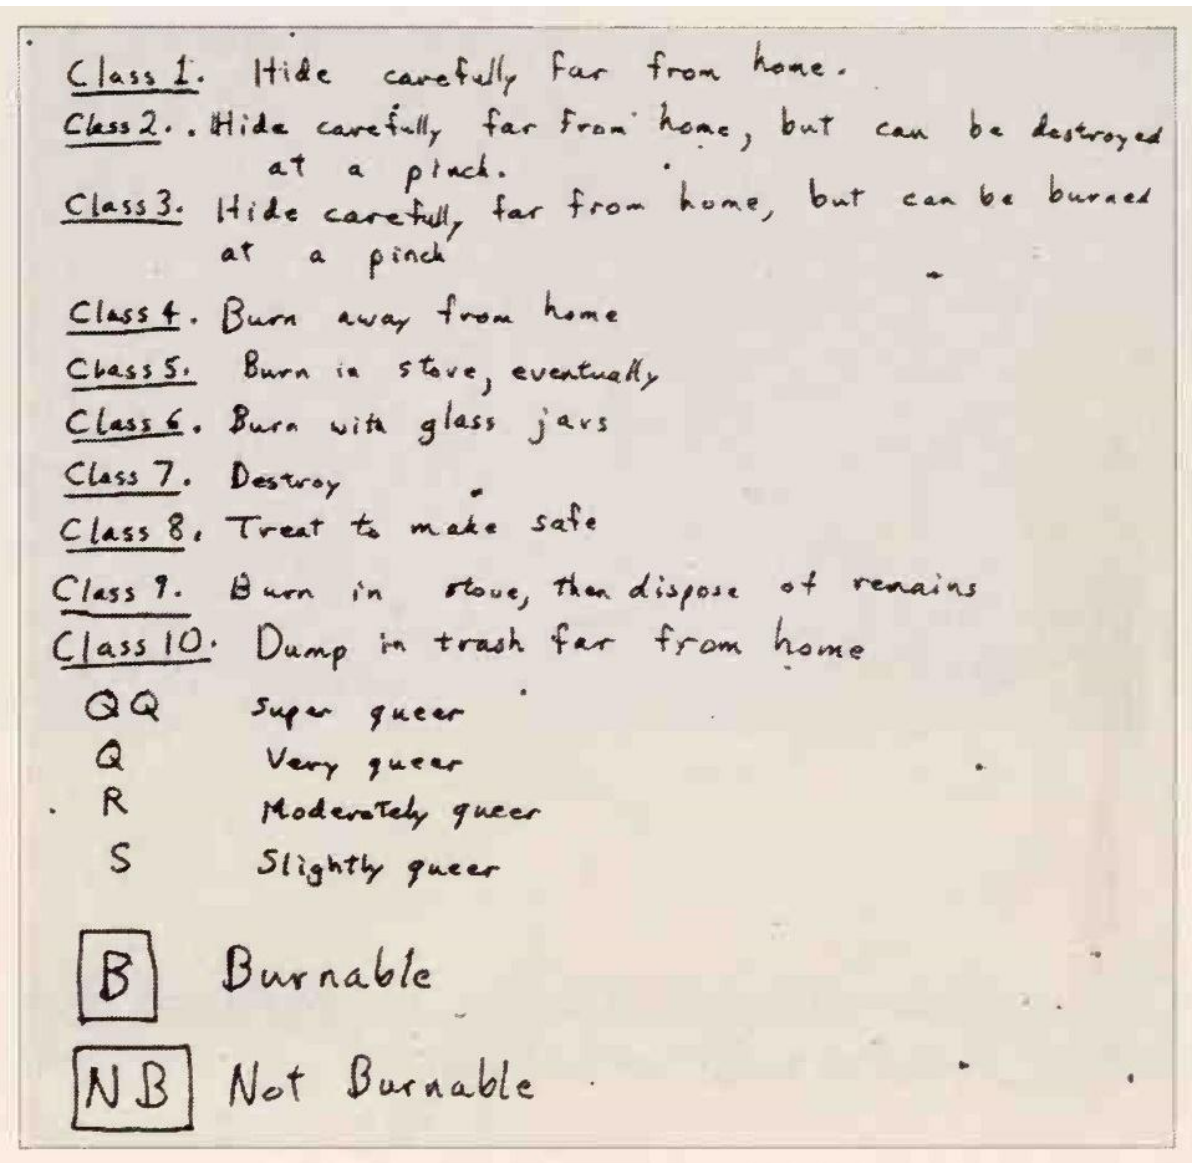 Class 1. Hide carefully far from home.
Class 2. Hide carefully far from home, but can be destroyed
at a pinch.
Class 3. Hide carefully far from home, but can be burned
at a pinch
Class 4. Burn away from home
Class 5. Burn in stove, eventually
Class 6. Burn with glass jars
Class 7. Destroy
Class 8. Treat to make safe
Class 9. Burn in stove, then dispose of remains
Class 10. Dump in trash far from home
QQ Super queer
Q Very queer
R Moderately queer
S Slightly queer
B Burnable
NB Not Burnable